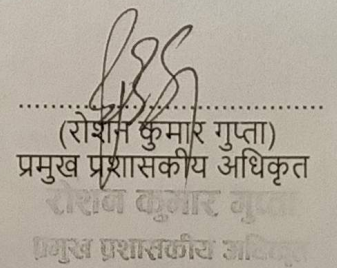 ........................................
(रोशन कुमार गुप्ता)
प्रमुख प्रशासकीय अधिकृत
रोशन कुमार गुप्ता
प्रमुख प्रशासकीय अधिकृत